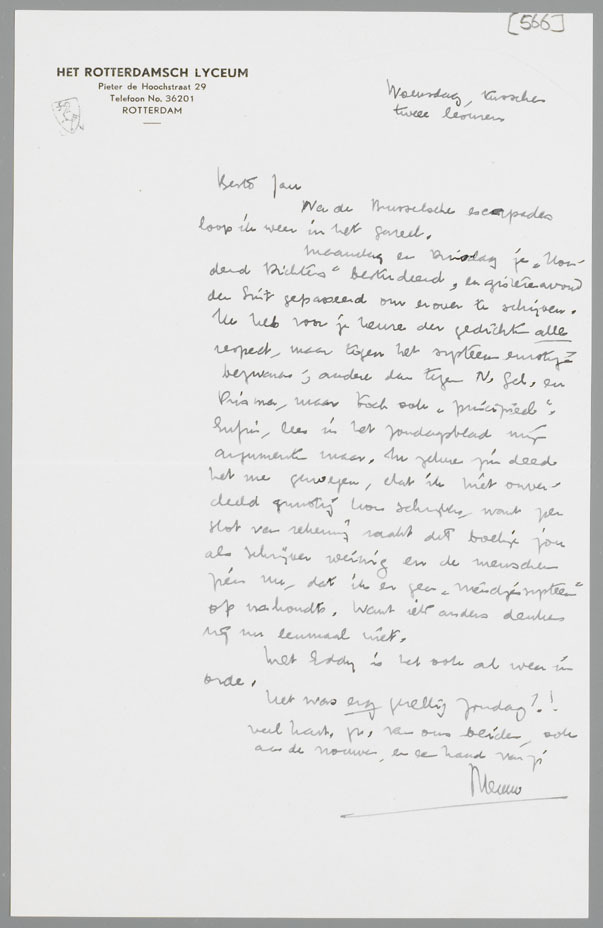 [566]
HET ROTTERDAMSCH LYCEUM
Pieter de Hoochstraat 29
Telefoon No. 36201
ROTTERDAM
Woensdag, tusschen
twee lesuren
Beste Jan
Na de Brusselsche escapades
loop ik weer in het gareel.
Maandag en Dinsdag je „Hon-
derd Dichters" bestudeerd, en gisterenavond
den Suit gepasseerd om erover te schrijven.
Ik heb voor je keuze der gedichten alle
respect, maar tegen het systeem ernstige
bezwaren; andere dan tegen N. Geb. en
Prisma, maar toch ook „principieele".
Enfin, lees in het Zondagsblad mijn
argumenten maar. In zekere zin deed
het me genoegen, dat ik niet onver-
deeld gunstig kon schrijven, want per
slot van rekening raakt dit boekje jou
als schrijver weinig en de menschen
zien nu, dat ik er geen „vriendjessysteem"
op nahoudt. Want iets anders denken
zij nu eenmaal niet.
Met Eddy is het ook al weer in
orde.
Het was erg gezellig Zondag!!
veel hart. gr. van ons beiden, ook
aan de vrouwen, en een hand van je
Menno